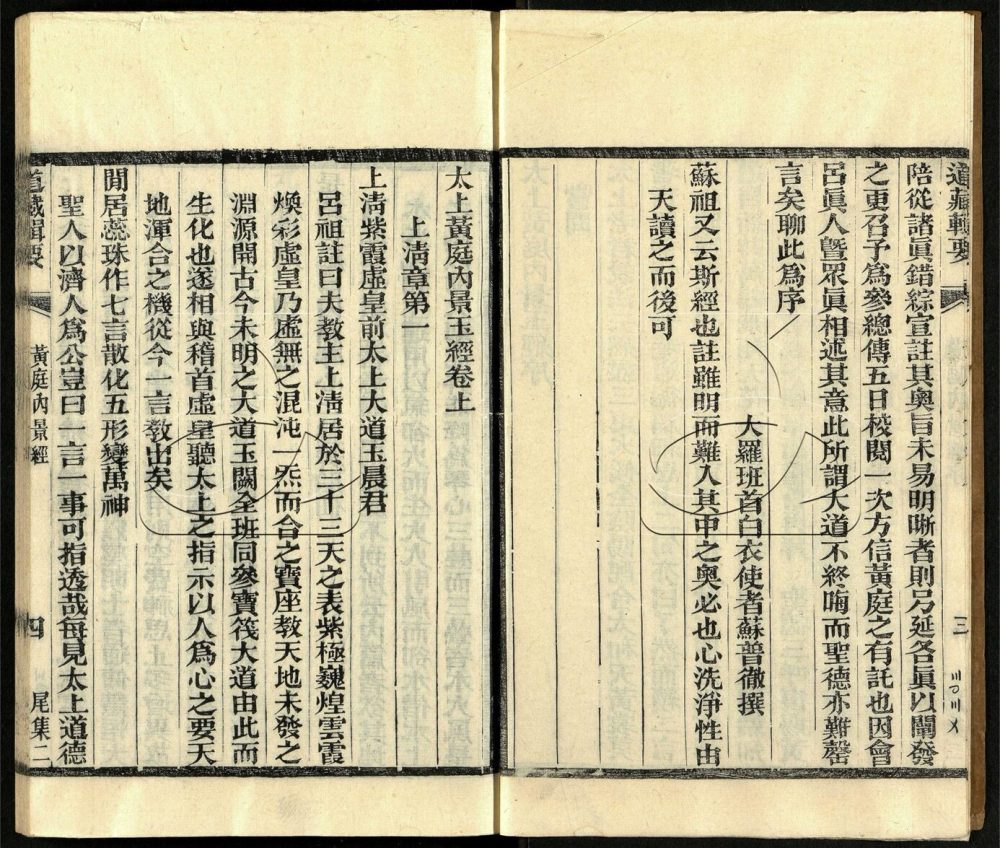 道藏輯要
三
陪從諸眞錯綜宣註其奧旨未易明晰者則乃延各眞以闡發
之更召予爲參總傳五日校閱一次方信黃庭之有託也因會
呂眞人暨眾眞相述其意此所謂大道不終晦而聖德亦難罄
言矣聊此爲序
大羅班首白衣使者蘇普徹撰
蘇祖又云斯經也註雖明而難入其中之奧必也心洗淨性由
天讀之而後可
太上黃庭內景玉經卷上
上淸章第一
上淸紫霞虛皇前太上大道玉晨君
呂祖註曰夫教主上淸居於三十三天之表紫極巍煌雲霞
煥彩虛皇乃虛無之混沌一炁而合之寶座教天地未發之
淵源開古今未明之大道玉闕全班同參寶筏大道由此而
生化也遂相與稽首虛皇聽太上之指示以人爲心之要天
地渾合之機從今一言教出矣
閒居蕊珠作七言散化五形變萬神
聖人以濟人爲公豈曰一言一事可指透哉每見太上道德
道藏輯要
黃庭內景經
四
尾集二